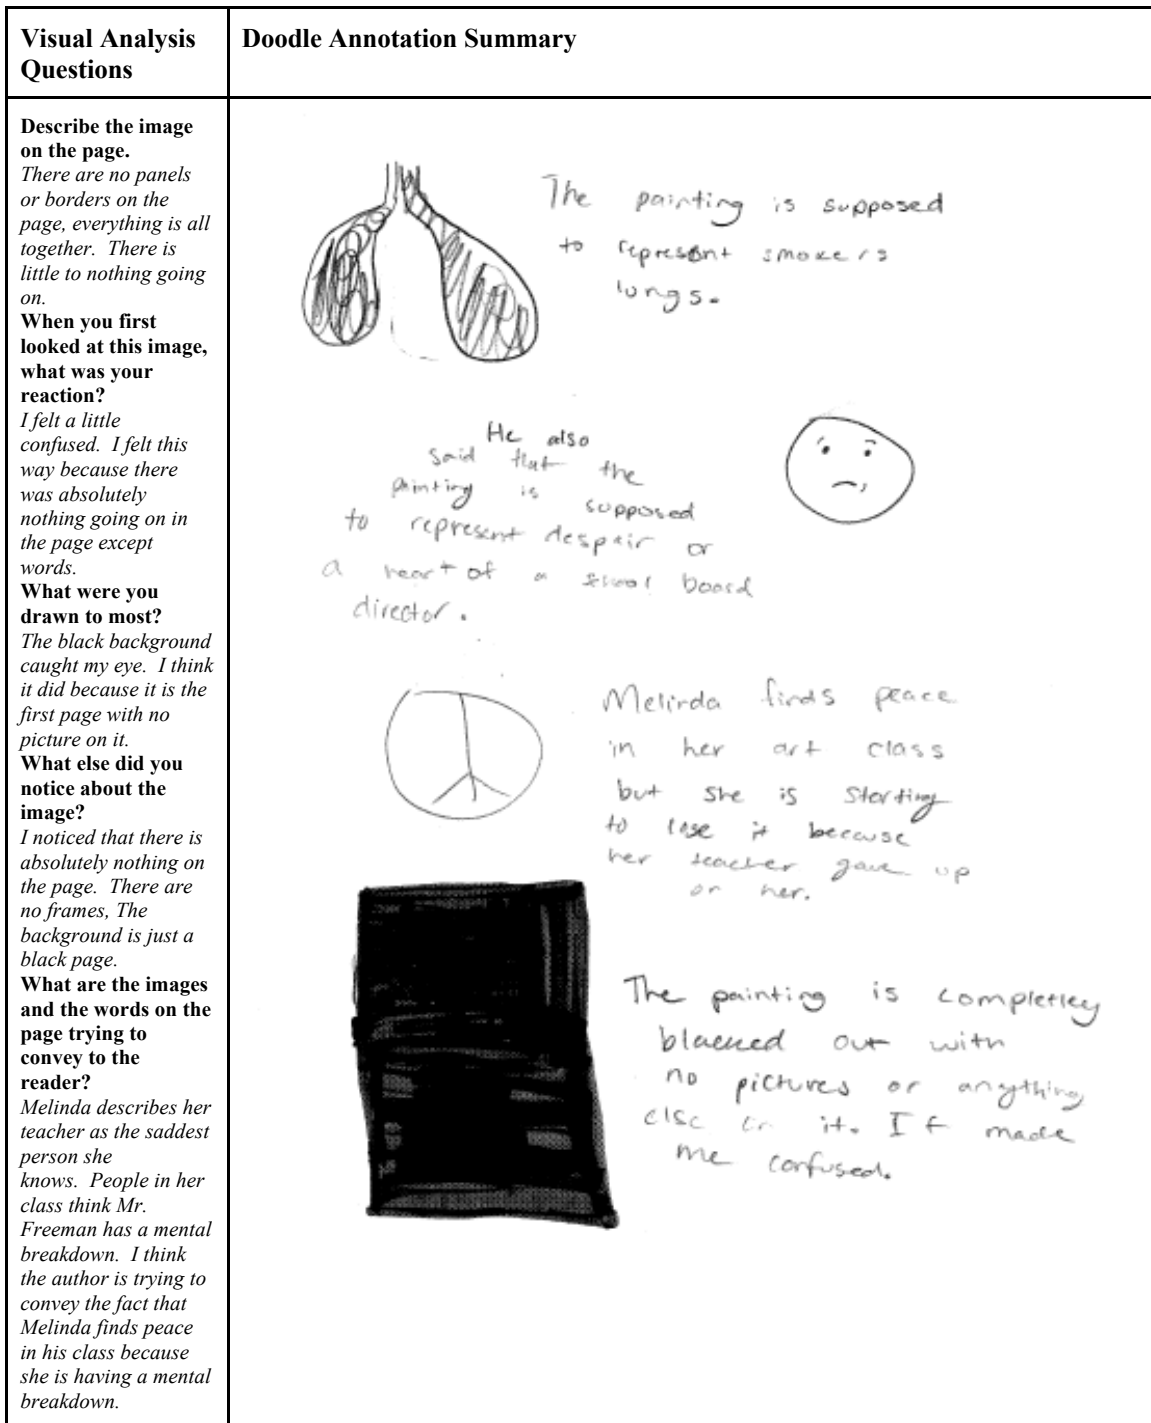 Visual Analysis
Questions
Doodle Annotation Summary
Describe the image
on the page.
There are no panels
or borders on the
page, everything is all
together. There is
little to nothing going
on.
When you first
looked at this image,
what was your
reaction?
I felt a little
confused. I felt this
way because there
was absolutely
nothing going on in
the page except
words.
What were you
drawn to most?
The black background
caught my eye. I think
it did because it is the
first page with no
picture on it.
What else did you
notice about the
image?
I noticed that there is
absolutely nothing on
the page. There are
no frames, The
background is just a
black page.
What are the images
and the words on the
page trying to
convey to the
reader?
Melinda describes her
teacher as the saddest
person she
knows. People in her
class think Mr.
Freeman has a mental
breakdown. I think
the author is trying to
convey the fact that
Melinda finds peace
in his class because
she is having a mental
breakdown.
The painting is supposed
to represent smokers
lungs.
He also
said that the
painting is supposed
to represent despair or
a heart of a school board
director.
Melinda finds peace
in her art class
but she is starting
to lose it because
her teacher gave up
on her.
The painting is completley
blacked out with
no pictures or anything
else on it. It made
me confused.